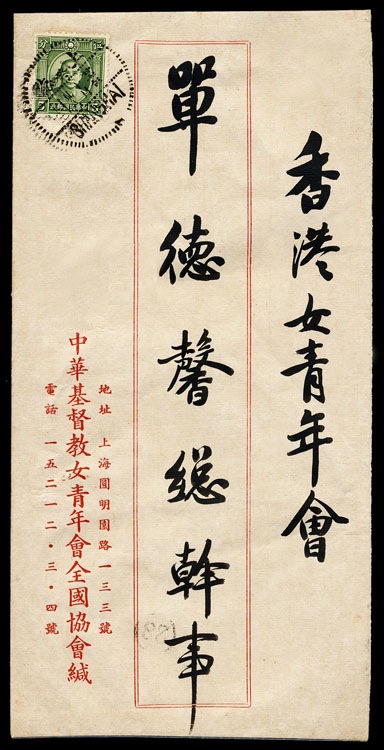 香港女青年會
單德馨総幹事
地址 上海圓明園路一三三號
中華基督教女青年會全國協會緘
電話 一五二一二・三・四號
SHANGHAI